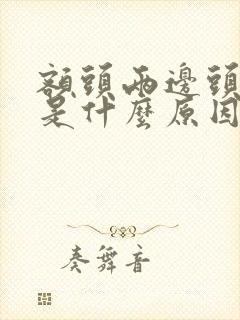 額頭兩邊頭
是什麼原因
奏舞音